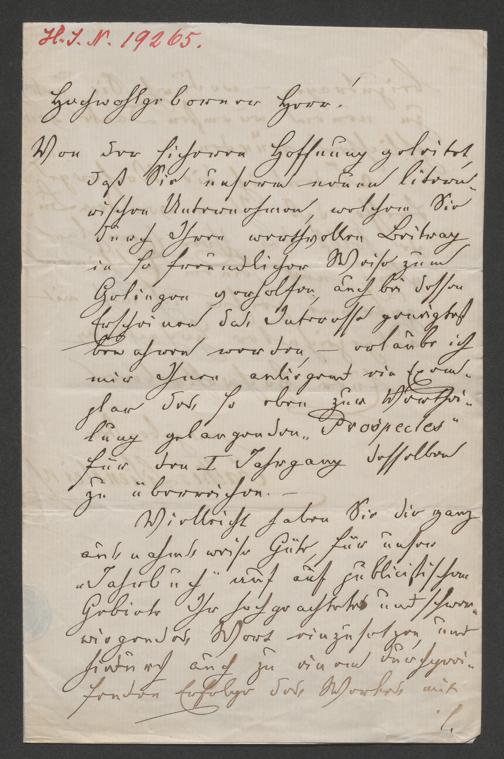 H. I. N. 19265.
Hochwohlgeborner Herr!
Von der sicheren Hoffnung geleitet,
daß Sie unserem neuen litera-
rischen Unternehmen, welchem Sie
durch Ihren werthvollen Beitrag
in so freundlicher Weise zum
Gelingen verholfen, auch bei dessen
Erscheinen das Interesse geneigtest
bewahren werden, — erlaube ich
mir Ihnen anliegend ein Exem-
plar des so eben zur Verthei-
lung gelangenden „Prospectes"
für den I Jahrgang desselben
zu überreichen. —
Vielleicht haben Sie die ganz
ausnahmsweise Güte, für unser
„Jahrbuch" auch auf publicistischem
Gebiete Ihr hochgeachtetes und schwer-
wiegendes Wort einzusetzen und
hiedurch auch zu einem durchgrei-
fenden Erfolge des Werkes mit
./.